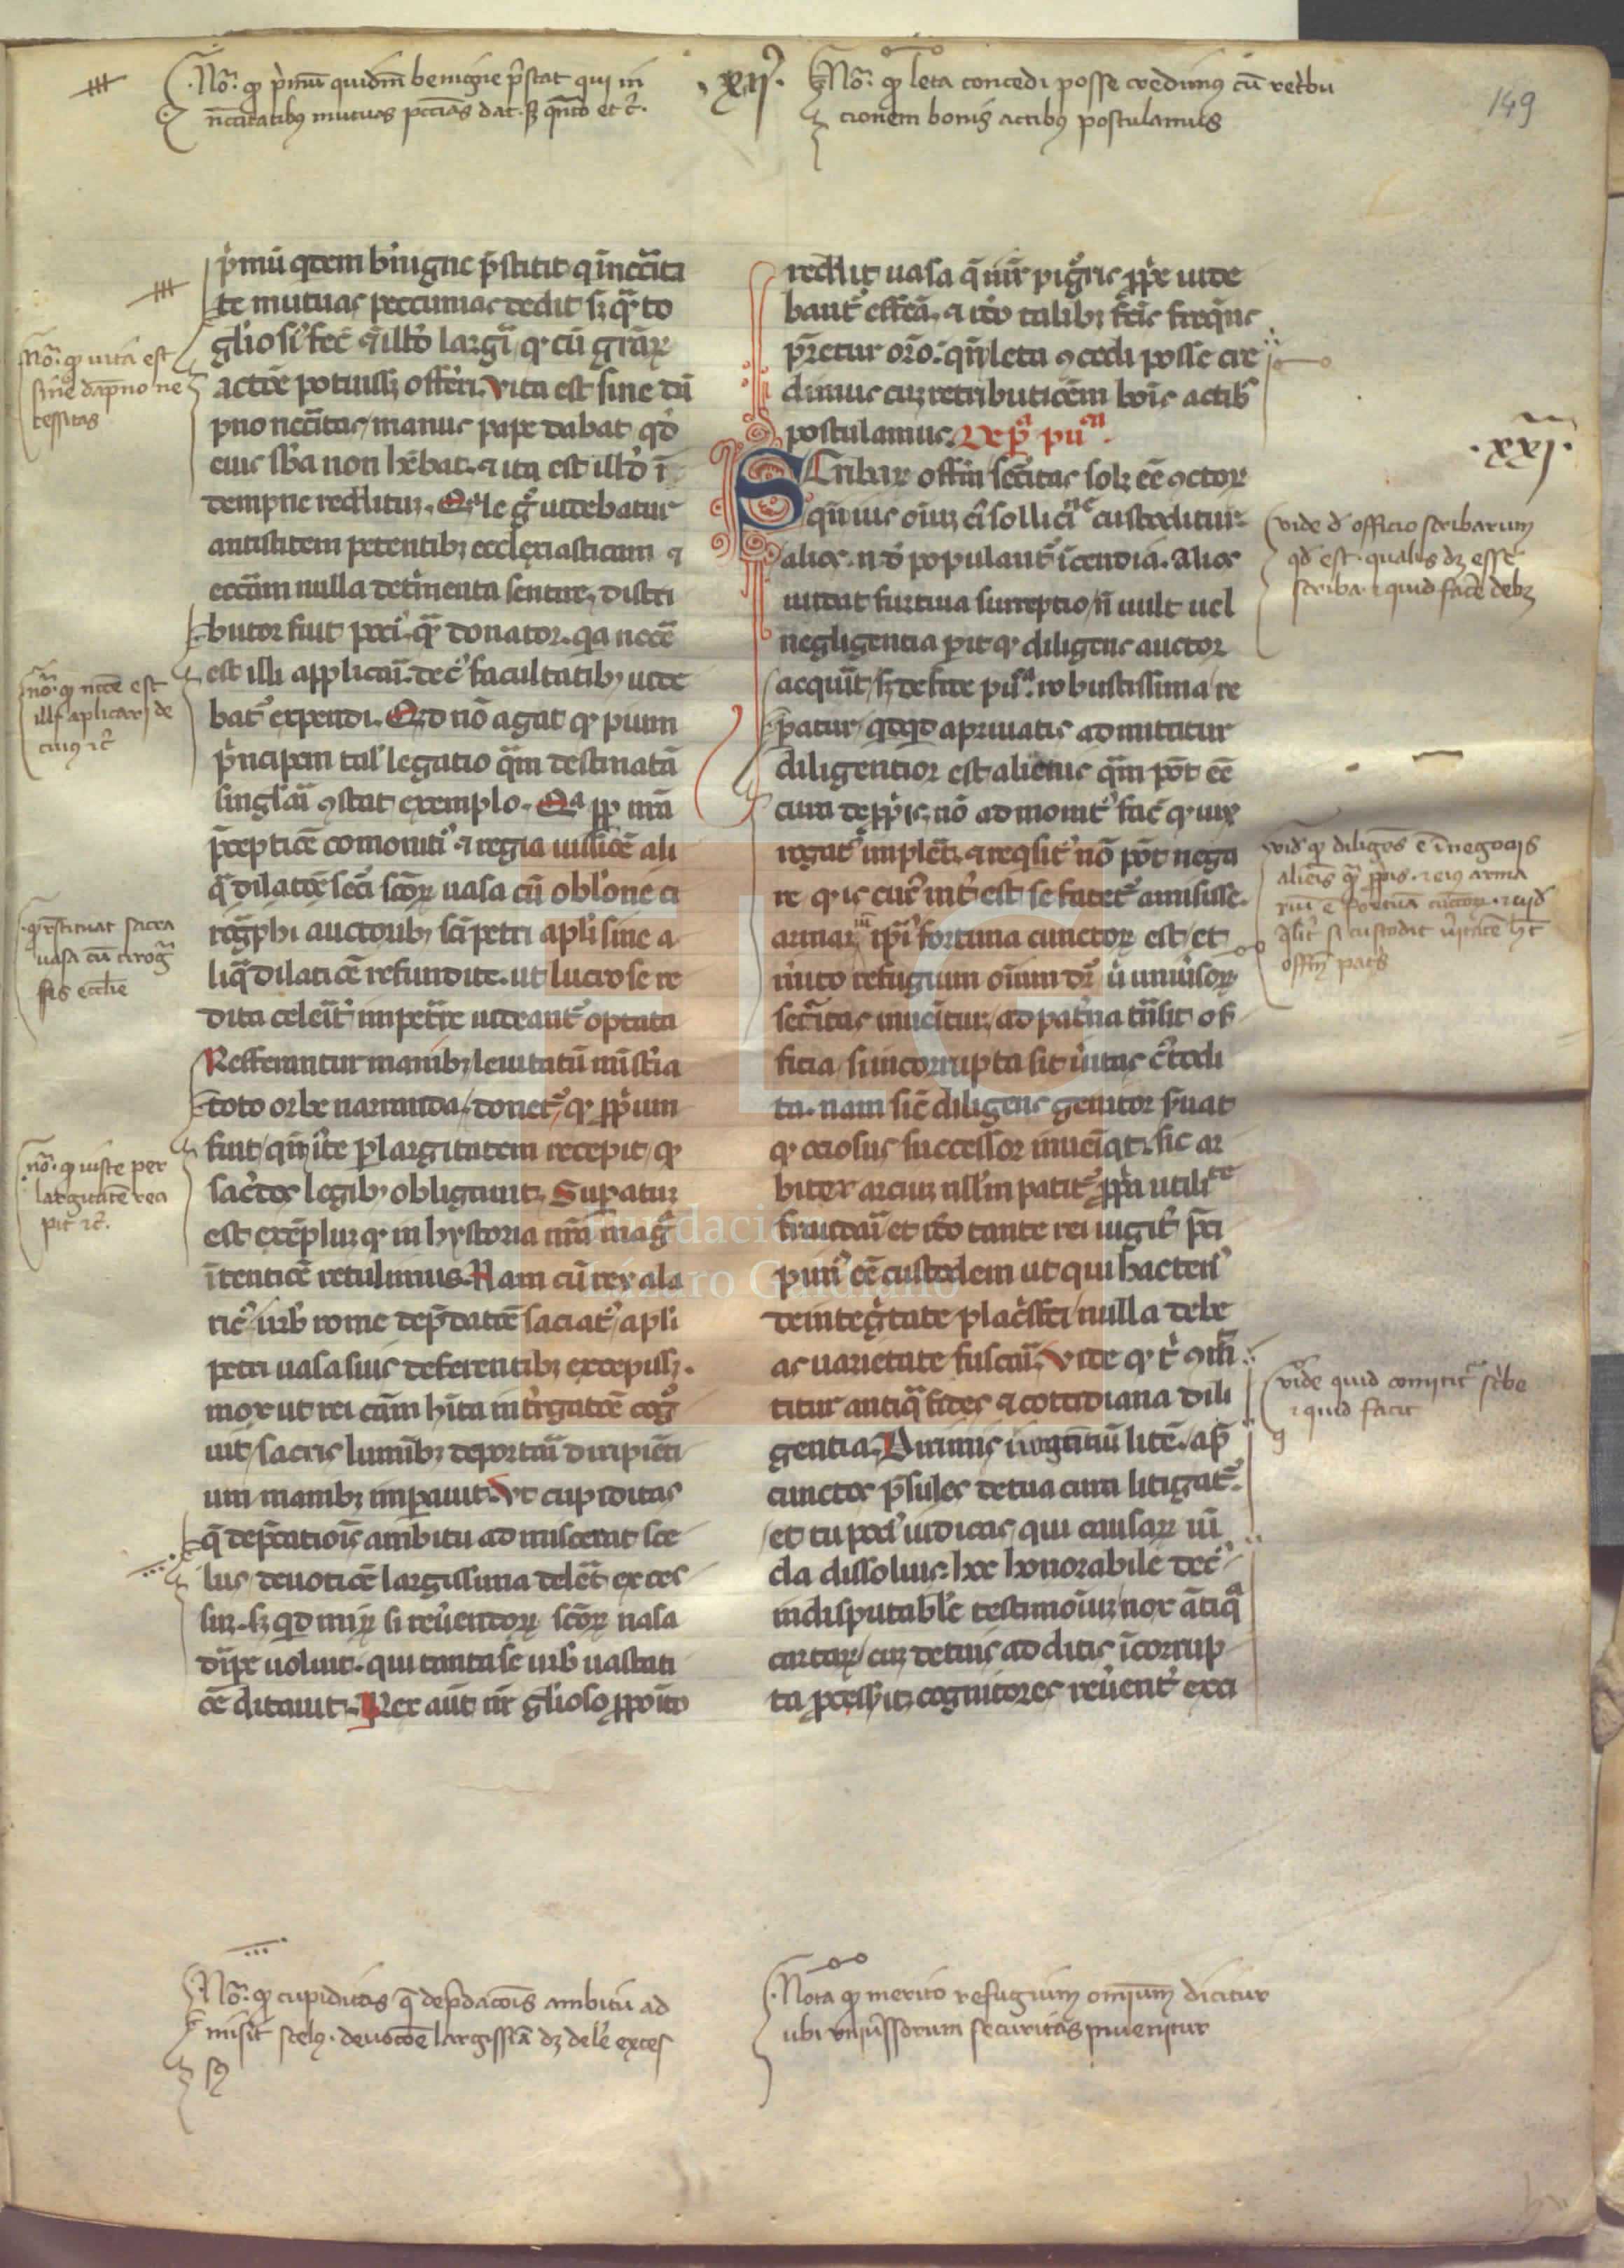 .No. qp p'mũ quidm̃ benigne p̃stat qui in
nc̃citatibꝰ mutuas pcc̃ias dat. sꝫ qñto et c̃.
.xii.
No. qp leta concedi posse credimꝰ cũ ret'bu
cionem bonis actibꝰ postulamus
149
p'mũ qdem b'nigne p̃stitit q̃ inecc̃ita
te mutuas peccunias dedit sꝫ q̃to
gl'iosi' fec̃ q̃ illđ largi' q cũ gr̃aꝝ
actõe potuissꝫ offerri. Vita est sine dã
pno nec̃itas, manus pape dabat qđ
eius sb̃a non hẽbat. ⁊ ita est illđ ĩ
dempne redditum. Quale g̊ uidebatur
antistitem petentibꝫ ecclesiasticam ⁊
ecc̃am nulla det'menta sentire, distri
butor fuit poci' q̃ donator. qa necẽ
est illi applicari. de c' facultatibꝫ uide
bat' expendi. Quid nõ agat qp pium
p'ncipem tal' legatio q̃m destinatã
singl'ari ꝯstat exemplo. Qa ꝓp nr̃a
p̃ceptiõe comoniti' ⁊ regia iussiõe ali
q̃ dilatõe sc̃i sc̃oꝝ uasa cũ obl'one ci
rog̃phi auctoribꝫ sc̃i petri apl'i sine a
liq̃ dilatiõe refundite. ut lucro se re
dita celerit' impetr̃e uideant' optata
Refferantur manibꝫ leuitatũ minist'ia
toto orbe narranda, donet' qp ꝓp'um
fuit, qñ iũte p̱ largitatem recepit, qp
sac̃dos legibꝫ obligauit. Supatur
est exẽplum qp in hystoria nr̃a mag̃
ĩtentiõe retulimus. Nam cũ rex ala
ric' urb' rome dep̃datiõe saciat', apl'i
petri uasa suis deferentibꝫ excepissꝫ.
mox ut rei cãm hita int'rogatiõe cog̊
uit, sacris liminibꝫ deportari diripiẽti
um manibꝫ imperauit. Ut cupiditas
q̃ dep̃dationis ambitu admiserat sce
lus, deuotiõe largissima deleret exces
sum. sꝫ qd mirũ si reuerendoꝝ sc̃oꝝ uasa
dirip̱e noluit. qui tanta se urb' uastati
õe ditauit. Rex aũt nr̃ gl'ioso ꝓpoito
reddidit uasa q̃ iure pig̊ris ꝓp'e uide
bant' effecta. ⁊ iđo talibꝫ fc̃is freq̃ns
p̃retur or̃o. qñ leta ꝯcedi posse cre
dimus cum retributiõem bõis actibꝫ
postulamus.
Scribaꝝ offm̃ secũitas solꝫ eẽ ꝯctoꝝ
qñ ius oĩum ei' sollicitudine custoditur.
alios. nđ populant' ĩcendia. Alios
nudat furtiua surreptio, ñ nult uel
negligentia perit qp diligens auctor
acquirit, sꝫ de fide pu'ca robustissima re
peratur, qđqd a priuatis admittitur
diligentior est alienis q̃m põt eẽ
cura de ꝓp'is, nõ admonit' fac̃ qp uix
rogat' implet, ⁊ reqsit' nõ põt nega
re qp is cui' int'est se fatet' amisisse.
armariũ ip̃i' fortuna cunctoꝝ est, et
merito refugium oĩum dr̃ ubi uniu'soꝝ
secũitas inuenitur, ad pat'na t'nsit of
ficia, si incorrupta sit u'itas c'todi
ta. nam sic̃ diligens genitor s'uat
qp ociosus successor inueniat. sic ar
biter arcium nullũ patit' ꝓp'a utilitate
fraudari et iđo tante rei uigil' p̃ci
pim' eẽ custodem ut qui hacten'
de integ'tate placuisti, nulla debe
as uarietate fuscari. Vide qp t' ꝯmit
titur antiq̃ fides ⁊ cottidiana dili
gentia. Dirimis ĩrogantiũ litẽ. ap'
cunctos p̃sules de tua cura litigat'.
et tu poci' iudicas qui causaꝝ uĩ
cla dissoluis. hoc honorabile dec'
indisputabile testimoĩum uox ãtiq̃
cartaꝝ, cum de tuis aditis ĩcorrup
ta processerit, cognitores reu'ent' exci
No. qp uita est
sine dapno ne
cessitas
no. qp nec̃e est
illi aplicari de
cuiꝰ ⁊c̃
qp restituat sacra
uasa cũ cirog̃
fis ecclie
no. qp iuste per
largitatẽ reci
pit ⁊c̃.
.xxi.
vide đ officio scribarum
qđ est. qualis dꝫ esse
scriba. ⁊ quid face debꝫ
vid' qp diligẽs ẽ ĩ negocijs
alieis q̃ ꝓpis. ⁊ eiꝰ arma
riũ ẽ fortuã cũctoꝝ.
vide quid comittit' sc'be
⁊ quid facit
No. qp cupiditas q̃ dep̃dacois ambitu ad
misit scelꝰ. deuocõe largissĩa dꝫ dele exces
sꝫ
.Nota qp merito refugium omium dicitur
ubi uniu'ssorum securitas inuenitur
Fundación
Lázaro Galdiano